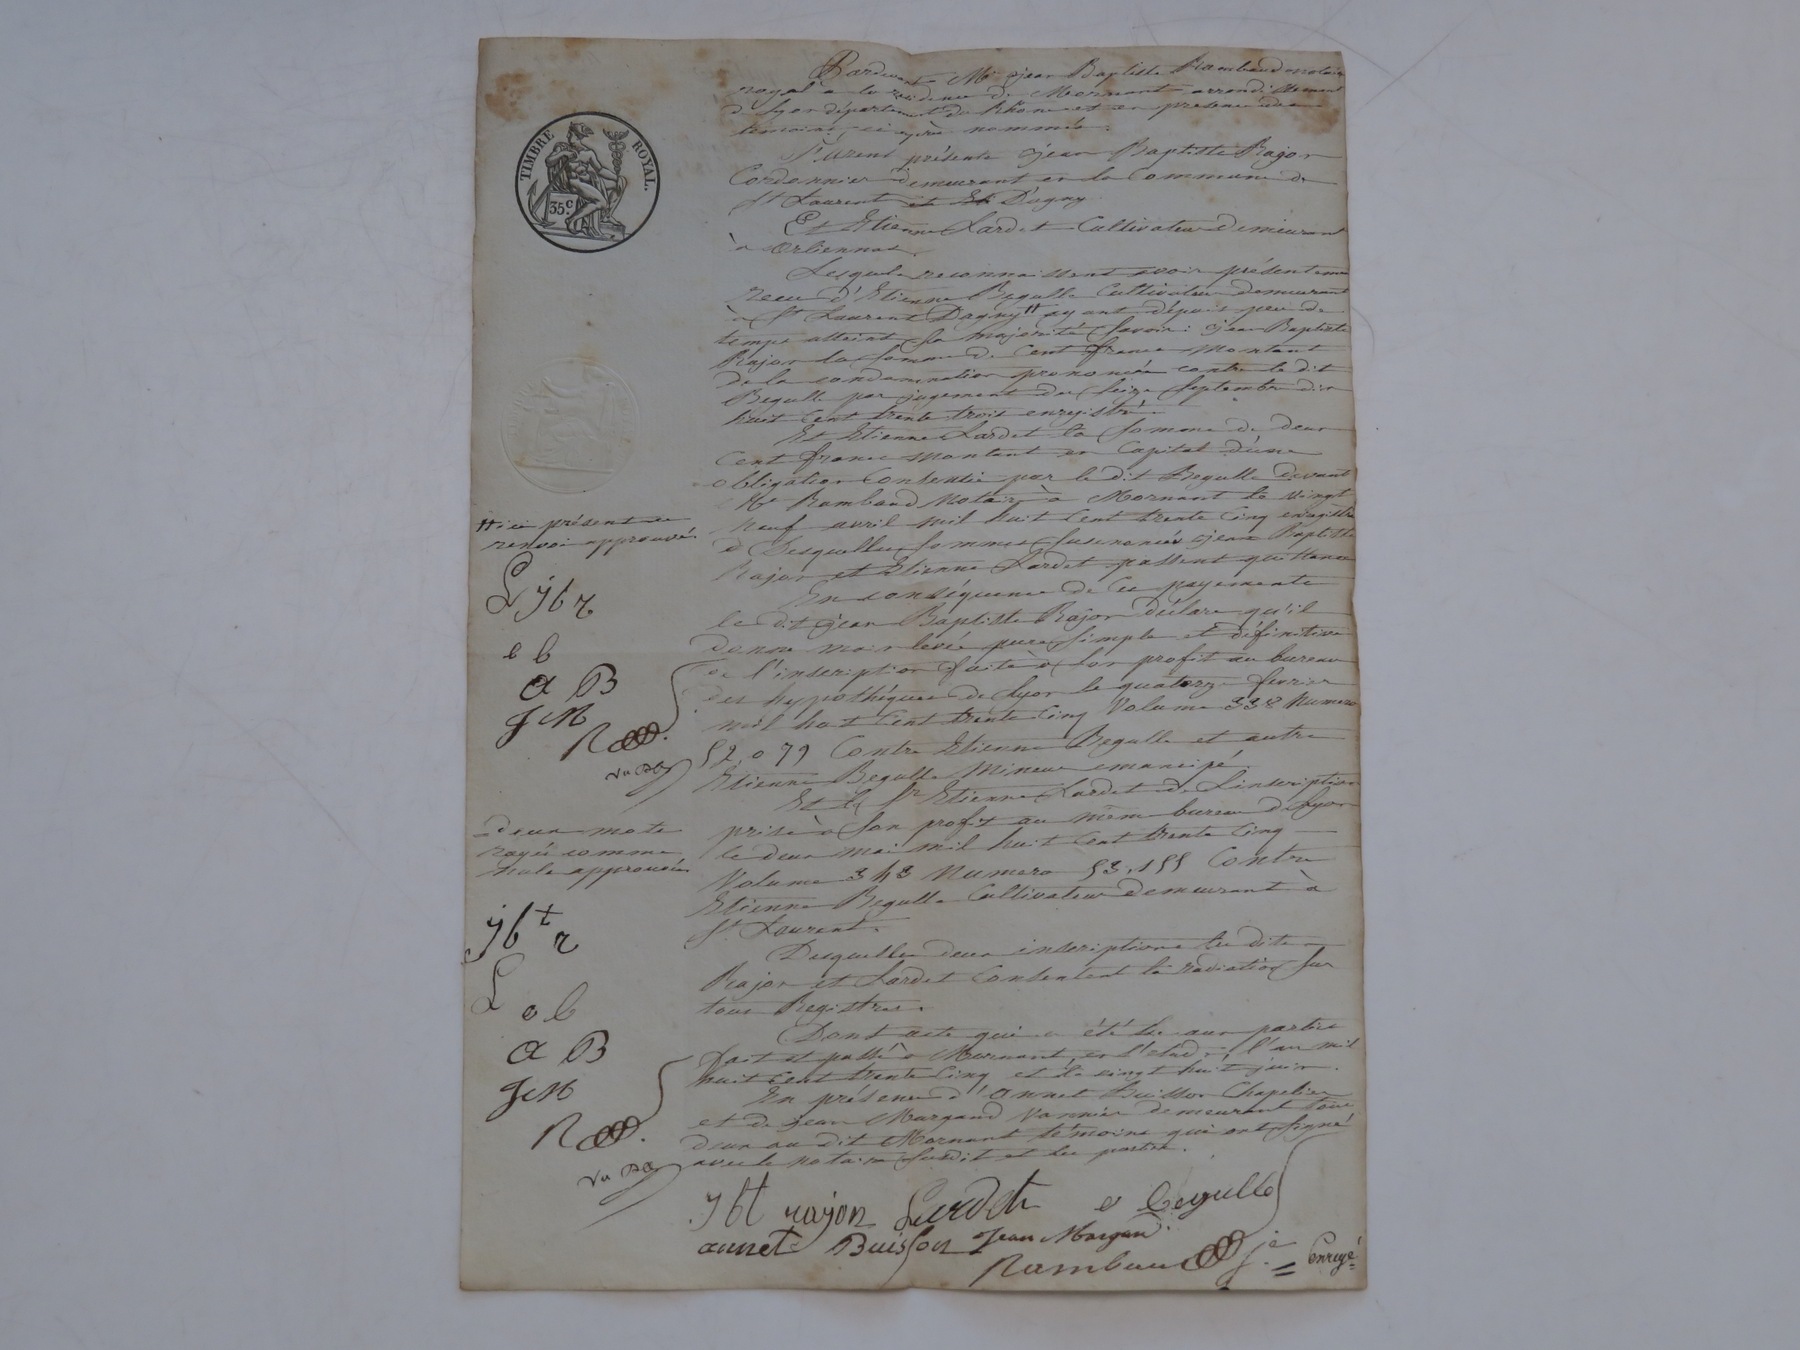 TIMBRE ROYAL.
35c.
Pardevant Me jean Baptiste Rambaud notaire
royal à la résidence de Mornant arrondissement
de Lyon département du Rhône et en présence des
témoins ci après nommés.
Surent présents jean Baptiste Rajon
Cordonnier demeurant en la Commune de
St Laurent et Et D'agny
Et Etienne Lardet Cultivateur demeurant
à Orliennas.
Lesquels reconnaissent avoir présentemen
recu d'Etienne Begulle Cultivateur demeurant
à St Laurent Dagny # ayant dépuis peu de
temps atteint sa majorité Savoir: jean Baptiste
Rajon la Somme de Cent francs Montant
de la condamnation prononcée contre le dit
Begulle par jugement du Seize Septembre dix
huit Cent trente trois enregistré.
Et Etienne Lardet la Somme de deux
Cent francs montant en Capital d'une
obligation Consentie par le dit Begulle devant
Me Rambaud Notaire à Mornant le vingt
neuf avril mil huit Cent trente Cinq enregistré
Desquelles Sommes Susenoncées jean Baptiste
Rajon et Etienne Lardet passent quittance
En conséquence de Ces payements
le dit jean Baptiste Rajon déclare qu'il
donne main levée pure Simple et définitive
de l'inscription faite à Son profit au bureau
des hypothéques de Lyon le quatorze fevrier
mil huit Cent trente Cinq Volume 338 Numero
52,079 Contre Etienne Begulle et autre
Etienne Begulle Mineur emancipé.
Et le Sr Etienne Lardet de L'inscription
prise à Son profit au même bureau de Lyon
le deux mai mil huit Cent trente Cinq
Volume 343 Numero 53,155 Contre
Etienne Begulle Cultivateur demeurant à
St Laurent.
Desquelles deux inscriptions les dits
Rajon et Lardet Consentent la radiation Sur
tous Registres.
Dont acte qui a été lu aux parties
fait et passé à Mornant en L'etude l'an mil
huit Cent trente Cinq et le vingt huit juin.
En présence d'annet Buisson Chapelier
et de jean Margand Vannier demeurant tous
deux au dit Mornant témoins qui ont Signé
avec le notaire Susdit et les parties.
# ici présent ce
renvoi approuvé.
L jb r
e b
a B
J M
R
deux mots
rayés comme
nuls approuvés
jbt r
L
e b
a B
J M
R
jbt rajon Lardet e Begulle
annet Buisson Jean Margand
Rambaud